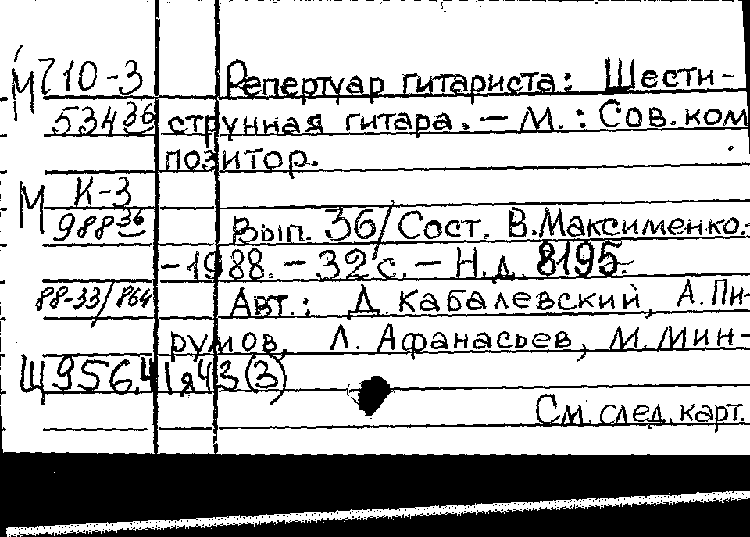 М Ч10-3 Репертуар гитариста: Шести-
534 36 струнная гитара. — М. : Сов. ком
позитор.
М К-3
988 36 Вып. 36/Сост. В.Максименко.-
-1988. - 32 с. - Н.д. 8195.
88-33/864 Авт.: Д. Кабалевский, А. Пи-
румов, Л. Афанасьев, М. Мин-
Щ956.41я43(3)
См. след. карт.